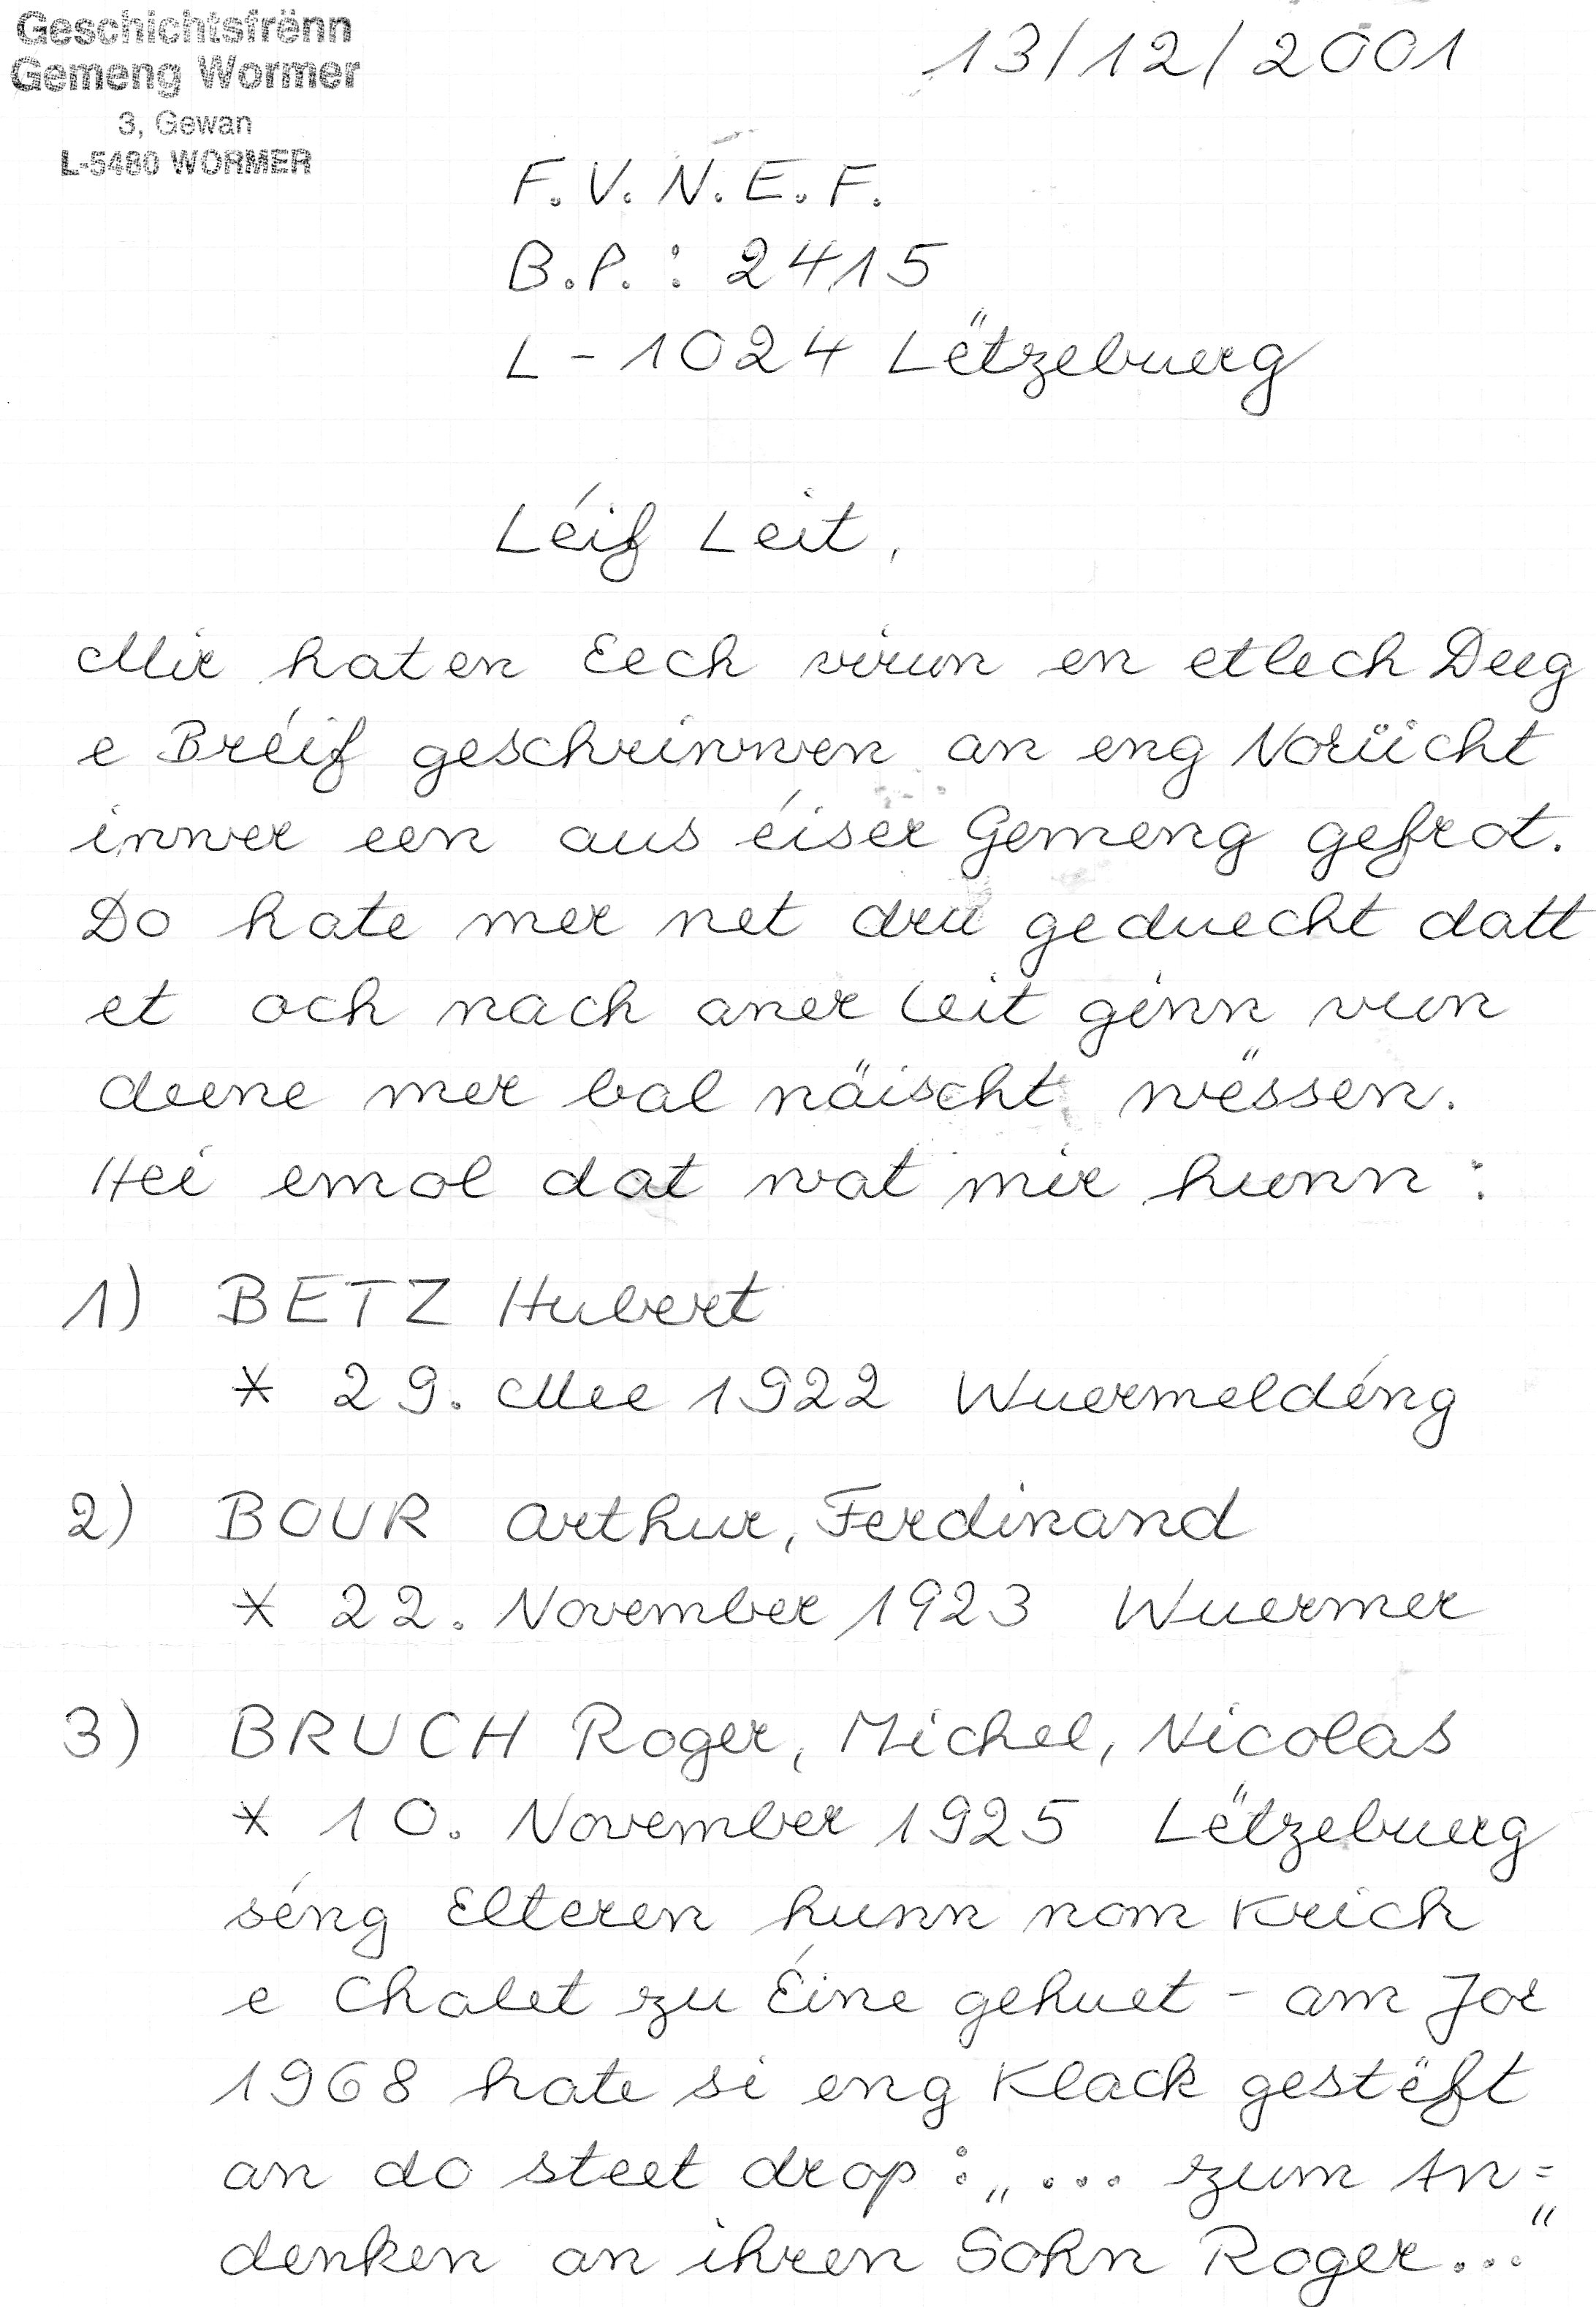 Geschichtsfrënn
Gemeng Wormer
3, Gewan
L-5480 WORMER
13/12/2001
F.V.N.E.F.
B.P.: 2415
L-1024 Lëtzebuerg
Léif Leit,
Mir haten Eech virun en etlech Deeg
e Bréif geschriwwen an eng Noriicht
iwwer een aus éiser Gemeng gefrot.
Do hate mer net dru geduecht datt
et och nach aner Leit ginn vun
deene mer bal näischt wëssen.
Hei emol dat wat mir hunn:
1) BETZ Hubert
* 29. Mee 1922 Wuermeldéng
2) BOUR Arthur, Ferdinand
* 22. November 1923 Wuermer
3) BRUCH Roger, Michel, Nicolas
* 10. November 1925 Lëtzebuerg
séng Elteren hunn nom Krich
e Chalet zu Éine gehuet - am Jor
1968 hate si eng Klack gestëft
an do steet drop: „... zum An=
denken an ihren Sohn Roger..."